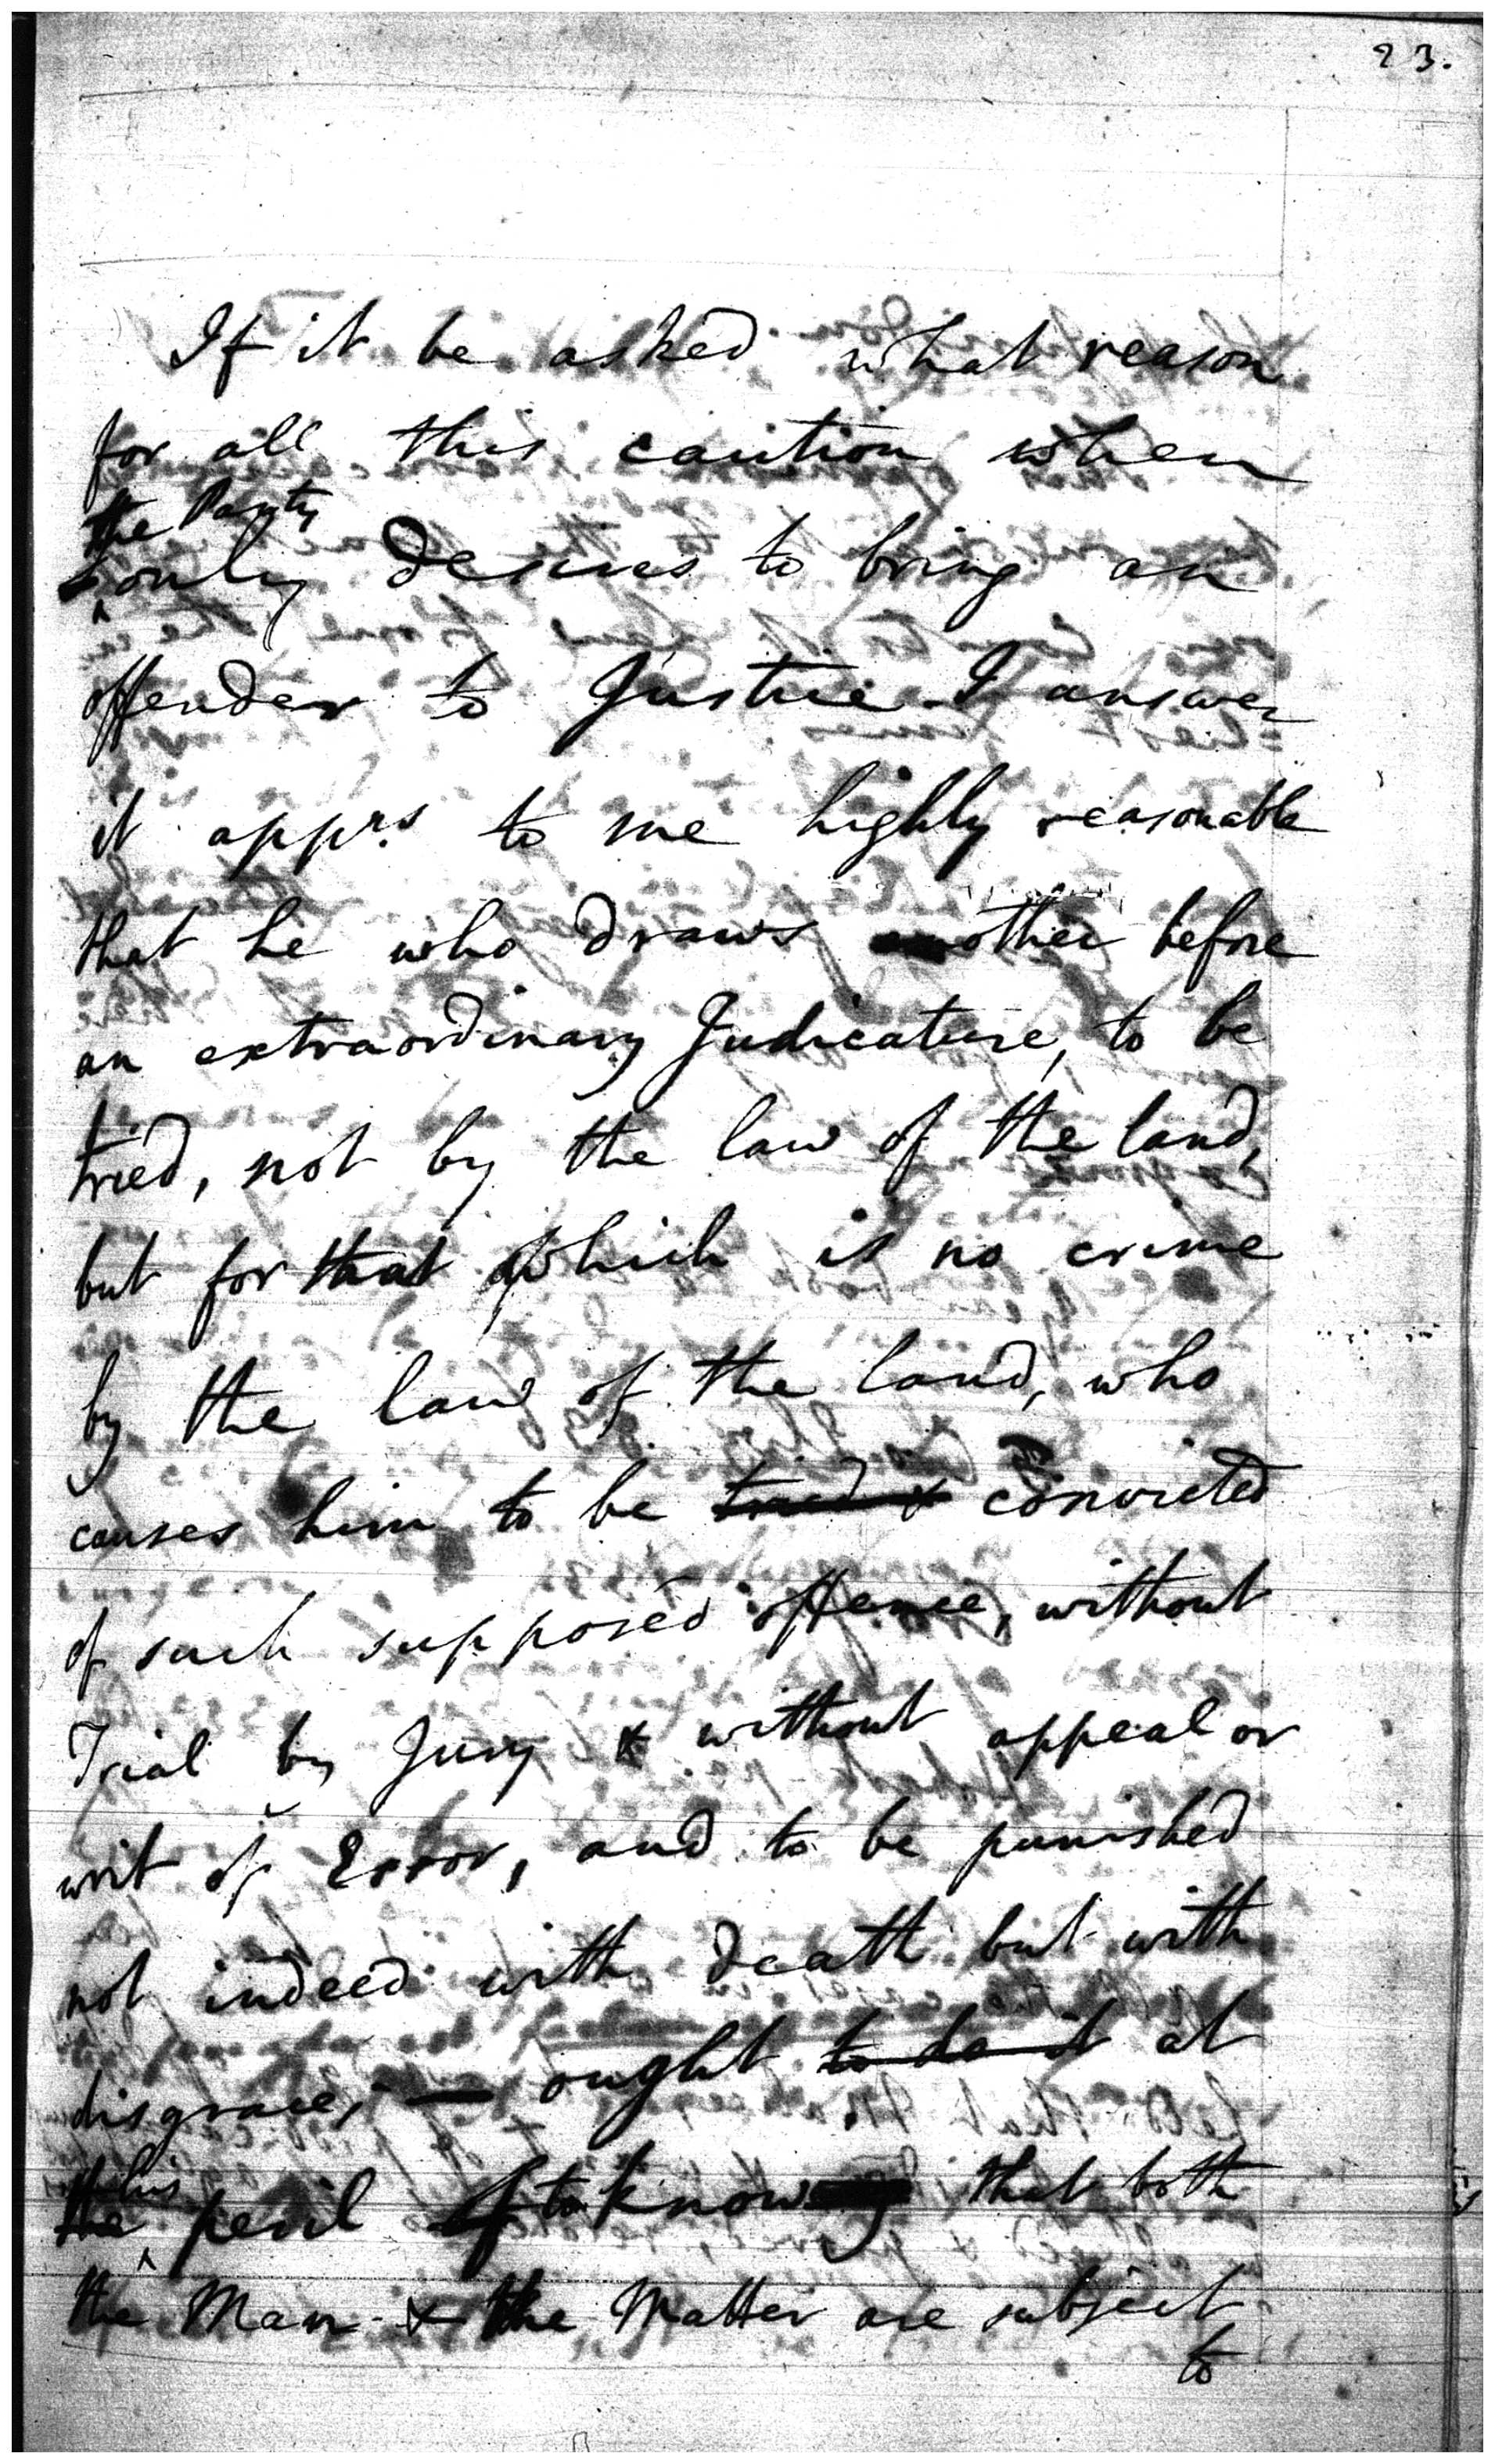 23.
If it be asked what reason
for all this caution when
the Party
only desires to bring an
offender to Justice - I answer
it apprs. to me highly reasonable
that he who draws another before
an extraordinary Judicature, to be
tried, not by the law of the land,
but for that which is no crime
by the law of the land, who
causes him to be tried & convicted
of such supposed offence, without
Trial by Jury & without appeal or
writ of Error, and to be punished
not indeed with death but with
disgrace; — ought to do it at
his
the peril to know that both
the Man & the Matter are subject
to